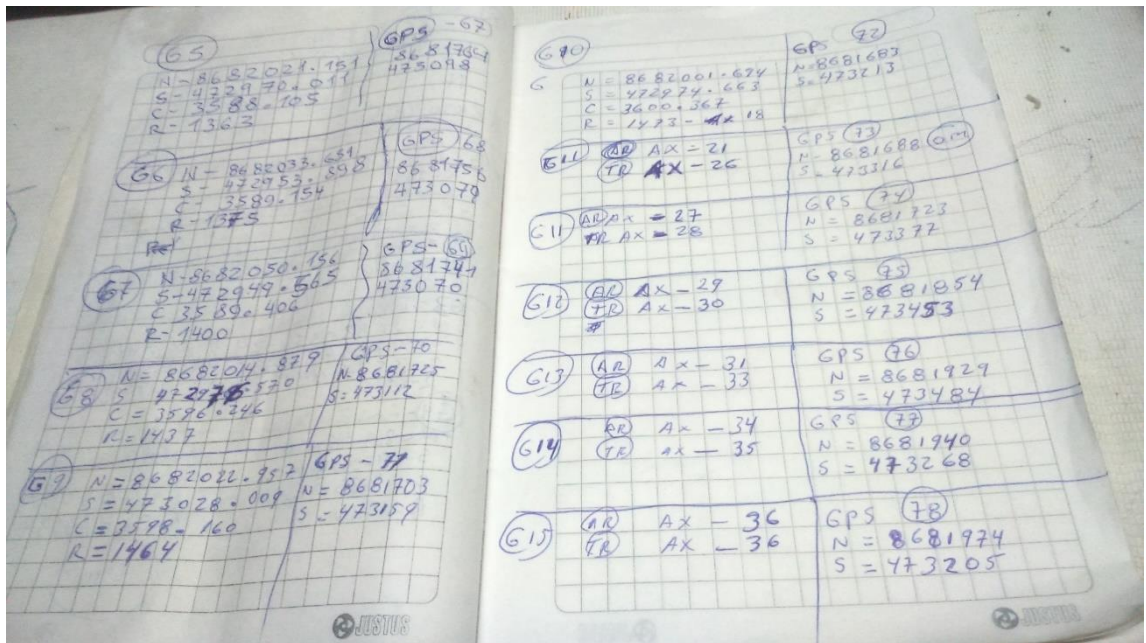 G5
N-8682021.151
S-472970.011
C-3588.105
R-1363
GPS-67
8681764
473098
G6
N-8682033.651
S-472953.898
C-3589.154
R-1375
GPS 68
8681756
473079
G7
N-8682050.156
S-472949.565
C 3589.406
R-1400
GPS-69
8681741
473070
G8
N=8682014.879
C=3596.246
R=1437
GPS-70
N-8681725
S=473112
G9
N=8682022.957
S=473028.009
C=3598-160
R=1464
GPS-71
N=8681703
S=473159
G10
G
N=8682001.674
S=472974.663
C=3600.367
R=1473-Ax 18
GPS 72
N=8681683
S=473213
G11 AR AX=21
TR AX-26
GPS 73
N-8681688
S=473316
G11 AR AX-27
TR AX-28
GPS 74
N=8681723
S=473377
G12 AR AX-29
TR AX-30
GPS 75
N=8681854
S=473453
G13 AR AX-31
TR AX-33
GPS 76
N=8681929
S=473484
G14 AR AX-34
TR AX-35
GPS 77
N=8681940
S=473268
G15 AR AX-36
TR AX-36
GPS 78
N=8681974
S=473205
JUSTUS
JUSTUS